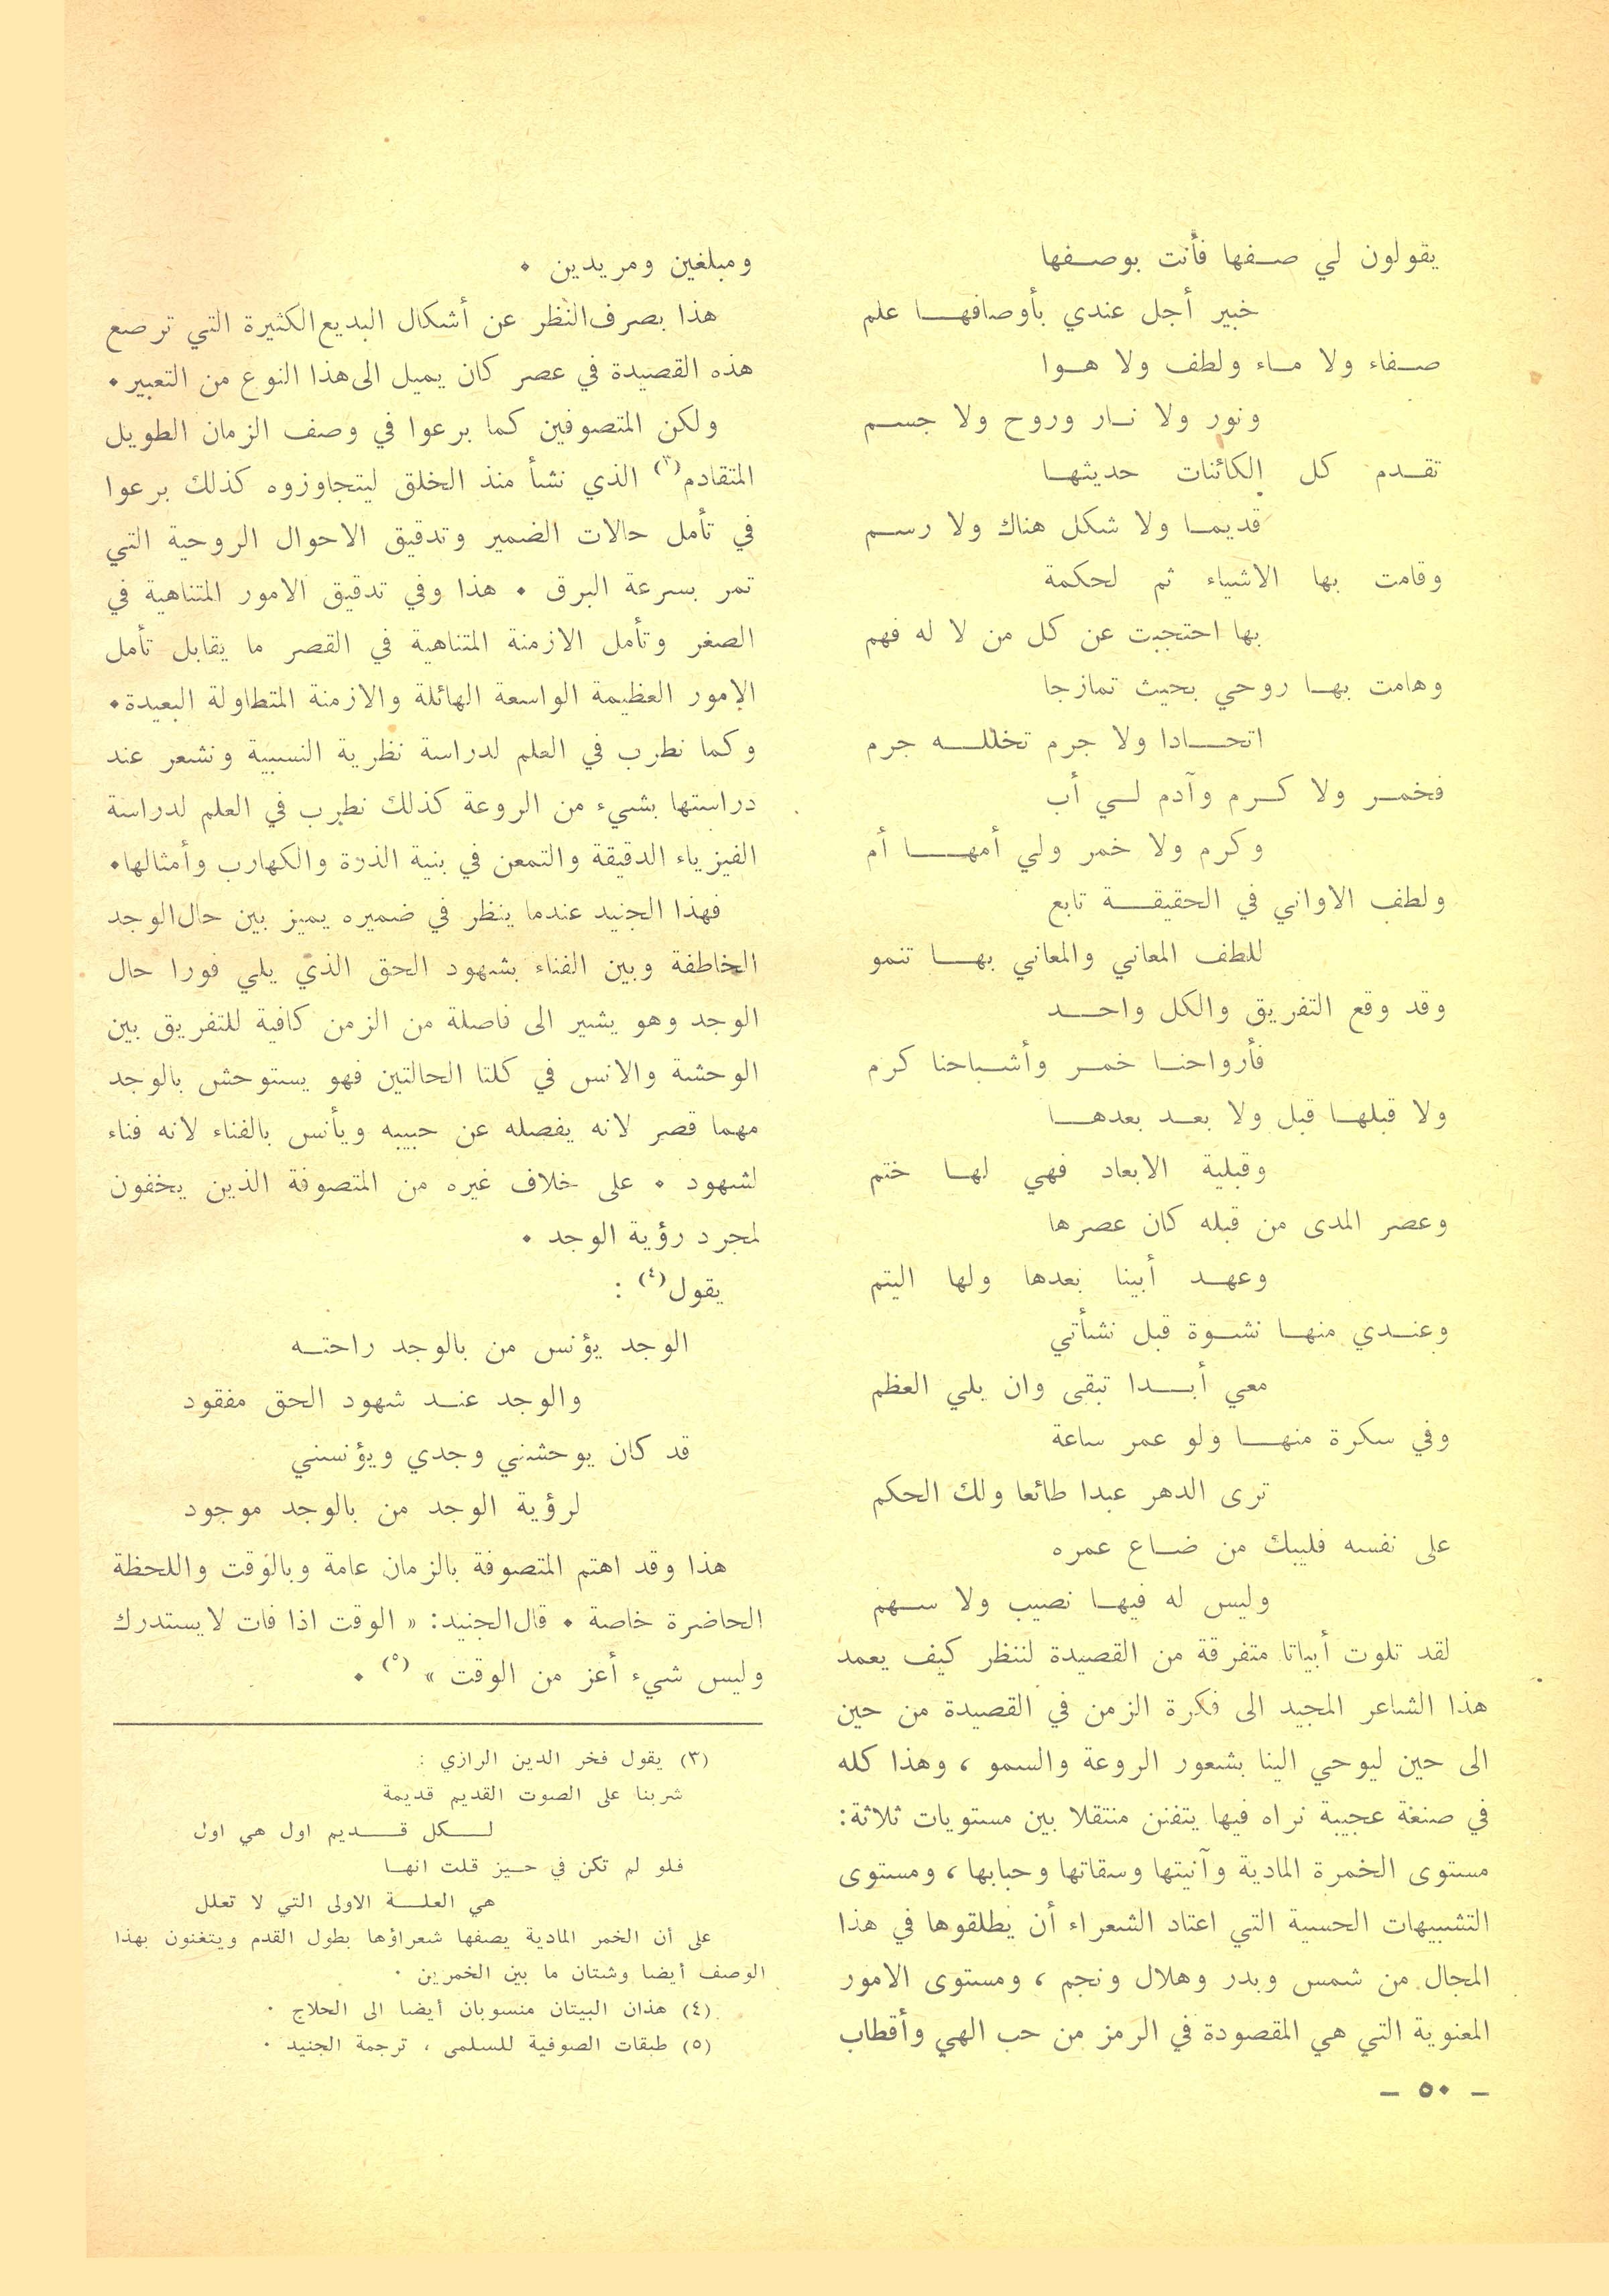 يقولون لي صفها فأنت بوصفها
خبير أجل عندي بأوصافها علم
صفاء ولا ماء ولطف ولا هوا
ونور ولا نار وروح ولا جسم
تقدم كل الكائنات حديثها
قديما ولا شكل هناك ولا رسم
وقامت بها الاشياء ثم لحكمة
بها احتجبت عن كل من لا له فهم
وهامت بها روحي بحيث تمازجا
اتحادا ولا جرم تخلله جرم
فخمر ولا كرم وآدم لي أب
وكرم ولا خمر ولي أمها أم
ولطف الاواني في الحقيقة تابع
للطف المعاني والمعاني بها تنمو
وقد وقع التفريق والكل واحد
فأرواحنا خمر وأشباحنا كرم
ولا قبلها قبل ولا بعد بعدها
وقبلية الابعاد فهي لها ختم
وعصر المدى من قبله كان عصرها
وعهد أبينا بعدها ولها اليتم
وعندي منها نشوة قبل نشأتي
معي أبدا تبقى وان بلي العظم
وفي سكرة منها ولو عمر ساعة
ترى الدهر عبدا طائعا ولك الحكم
على نفسه فليبك من ضاع عمره
وليس له فيها نصيب ولا سهم
لقد تلوت أبياتا متفرقة من القصيدة لننظر كيف يعمد
هذا الشاعر المجيد الى فكرة الزمن في القصيدة من حين
الى حين ليوحي الينا بشعور الروعة والسمو ، وهذا كله
في صنعة عجيبة نراه فيها يتفنن منتقلا بين مستويات ثلاثة:
مستوى الخمرة المادية وآنيتها وسقاتها وحبابها ، ومستوى
التشبيهات الحسية التي اعتاد الشعراء أن يطلقوها في هذا
المجال من شمس وبدر وهلال ونجم ، ومستوى الامور
المعنوية التي هي المقصودة في الرمز من حب الهي وأقطاب
ومبلغين ومريدين .
هذا بصرف النظر عن أشكال البديع الكثيرة التي ترصع
هذه القصيدة في عصر كان يميل الى هذا النوع من التعبير.
ولكن المتصوفين كما برعوا في وصف الزمان الطويل
المتقادم(٣) الذي نشأ منذ الخلق ليتجاوزوه كذلك برعوا
في تأمل حالات الضمير وتدقيق الاحوال الروحية التي
تمر بسرعة البرق . هذا وفي تدقيق الامور المتناهية في
الصغر وتأمل الازمنة المتناهية في القصر ما يقابل تأمل
الامور العظيمة الواسعة الهائلة والازمنة المتطاولة البعيدة.
وكما نطرب في العلم لدراسة نظرية النسبية ونشعر عند
دراستها بشيء من الروعة كذلك نطرب في العلم لدراسة
الفيزياء الدقيقة والتمعن في بنية الذرة والكهارب وأمثالها.
فهذا الجنيد عندما ينظر في ضميره يميز بين حال الوجد
الخاطفة وبين الفناء بشهود الحق الذي يلي فورا حال
الوجد وهو يشير الى فاصلة من الزمن كافية للتفريق بين
الوحشة والانس في كلتا الحالتين فهو يستوحش بالوجد
مهما قصر لانه يفصله عن حبيبه ويأنس بالفناء لانه فناء
لشهود . على خلاف غيره من المتصوفة الذين يخفون
لمجرد رؤية الوجد .
يقول(٤) :
الوجد يؤنس من بالوجد راحته
والوجد عند شهود الحق مفقود
قد كان يوحشني وجدي ويؤنسني
لرؤية الوجد من بالوجد موجود
هذا وقد اهتم المتصوفة بالزمان عامة وبالوقت واللحظة
الحاضرة خاصة . قال الجنيد: « الوقت اذا فات لا يستدرك
وليس شيء أعز من الوقت » (٥) .
(٣) يقول فخر الدين الرازي :
شربنا على الصوت القديم قديمة
لكل قديم اول هي اول
فلو لم تكن في حيز قلت انها
هي العلة الاولى التي لا تعلل
على أن الخمر المادية يصفها شعراؤها بطول القدم ويتغنون بهذا
الوصف أيضا وشتان ما بين الخمرين .
(٤) هذان البيتان منسوبان أيضا الى الحلاج .
(٥) طبقات الصوفية للسلمى ، ترجمة الجنيد .
— ٥٠ —